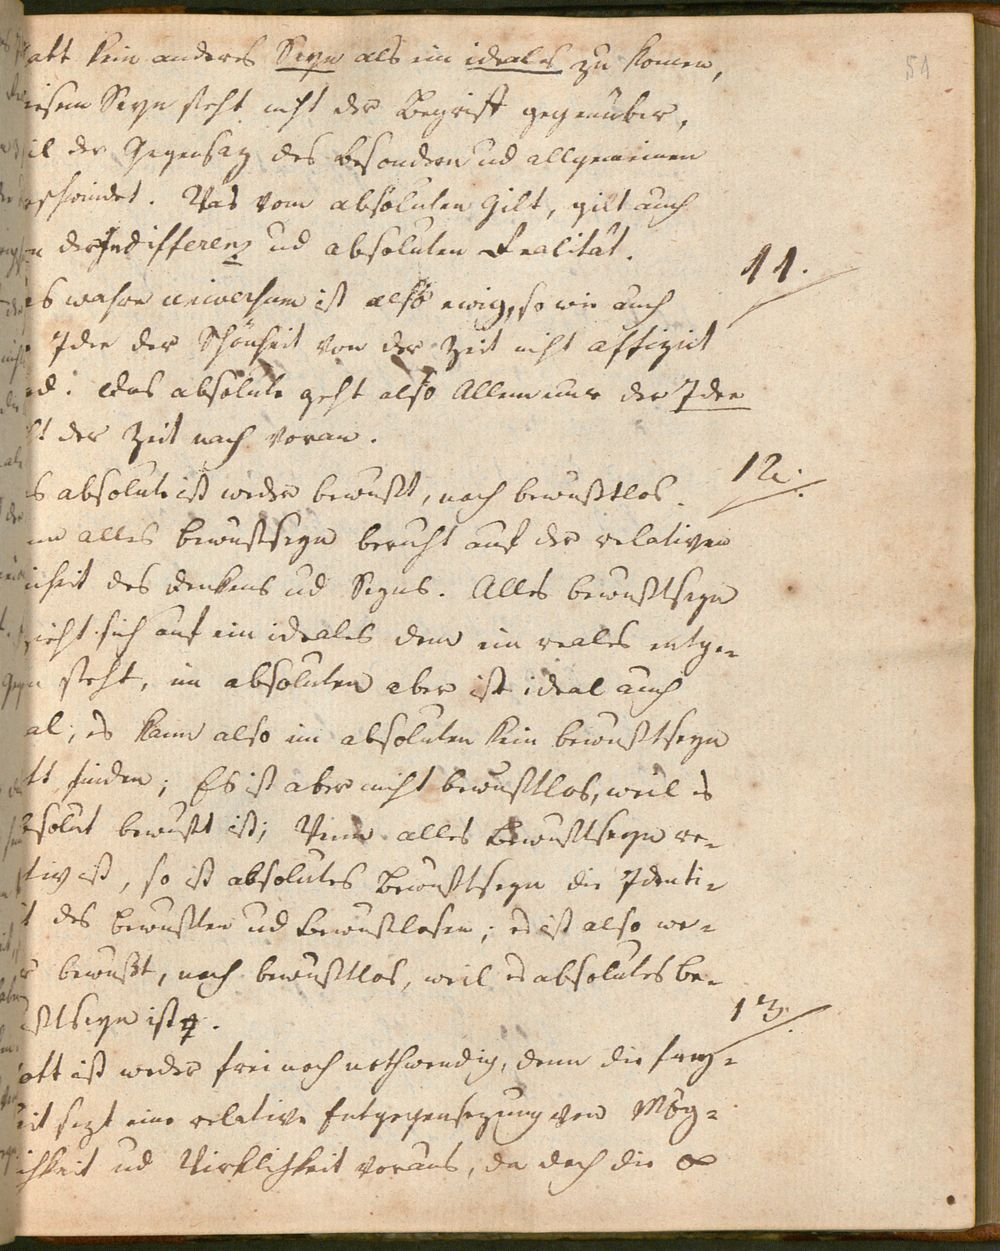 51
att kein anderes Seyn als ein ideales zu komen,
iesem Seyn steht nicht der Begriff gegenüber,
il der Gegensaz des besondern ud allgemeinen
rschwindet. Was vom absoluten gilt, gilt auch
n der Indifferenz ud absoluten Realität.
11.
as wahre universum ist also ewig, so wie auch
Idee der Schönheit von der Zeit nicht affizirt
rd. Das absolute geht also Allem nur der Idee
ht der Zeit nach voran.
12.
s absolute ist weder bewußt, noch bewußtlos.
nn alles bewußtseyn beruht auf der relativen
inheit des denkens ud Seyns. Alles bewußtseyn
zieht sich auf ein ideales dem ein reales entge-
gen steht, im absoluten aber ist ideal auch
al; es kann also im absoluten kein bewußtseyn
tt finden; Es ist aber nicht bewußtlos, weil es
bsolut bewußt ist; Wenn alles bewußtseyn re-
tiv ist, so ist absolutes bewußtseyn die Identi-
t des bewußten ud bewußtlosen; es ist also we-
r bewußt, noch bewußtlos, weil es absolutes be-
ußtseyn ist.
13.
ott ist weder frei noch nothwendig, denn die frey-
eit sezt eine relative Entgegensezung von Mög-
ichkeit ud Wirklichkeit voraus, da doch die ∞